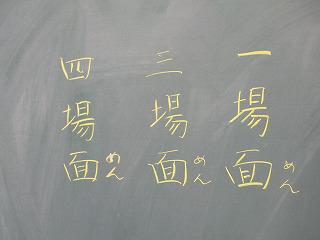 一場面めん
三場面めん
四場面めん